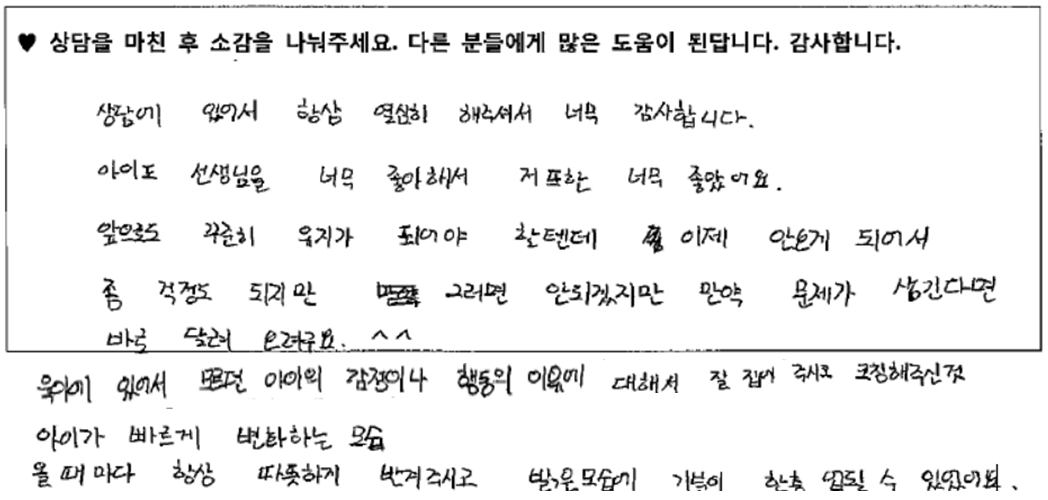 ♥ 상담을 마친 후 소감을 나눠주세요. 다른 분들에게 많은 도움이 된답니다. 감사합니다.
상담에 있어서 항상 열심히 해주셔서 너무 감사합니다.
아이도 선생님을 너무 좋아해서 저 또한 너무 좋았어요.
앞으로도 꾸준히 유지가 되어야 할텐데 이제 안오게 되어서
좀 걱정도 되지만 그러면 안되겠지만 만약 문제가 생긴다면
바로 달려 오려구요. ^^
육아에 있어서 모르던 아이의 감정이나 행동의 이유에 대해서 잘 집어 주시고 코칭해주신것
아이가 빠르게 변화하는 모습
올 때 마다 항상 따뜻하게 반겨주시고 밝은모습에 기분이 한층 업될 수 있었어요.